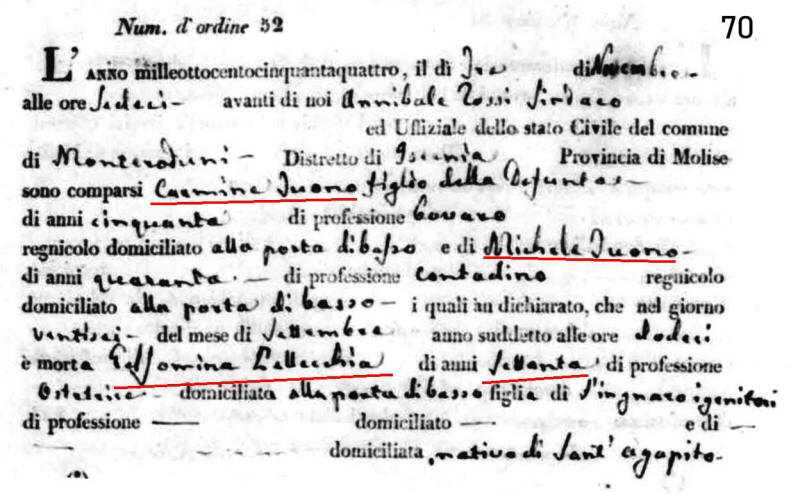 Num. d'ordine 52
70
L'ANNO milleottocentocinquantaquattro, il di Tre di Novembre
alle ore Sedeci - avanti di noi Annibale Rossi Sindaco
ed Uffiziale dello stato Civile del comune
di Monteroduni - Distretto di Isernia Provincia di Molise
sono comparsi Carmine Iuono figlio della Defunta -
di anni cinquanta di professione bovaro
regnicolo domiciliato alla porta di basso e di Michele Iuono -
di anni quaranta - di professione contadino regnicolo
domiciliato alla porta di basso - i quali an dichiarato, che nel giorno
ventisei - del mese di Settembre anno suddetto alle ore dodeci
è morta Gelsomina Pellecchia di anni settanta di professione
Ostetrice - domiciliata alla porta di basso figlia di s'ingnaro i genitori
di professione — domiciliato — e di —
domiciliata, nativa di Sant'Agapito -